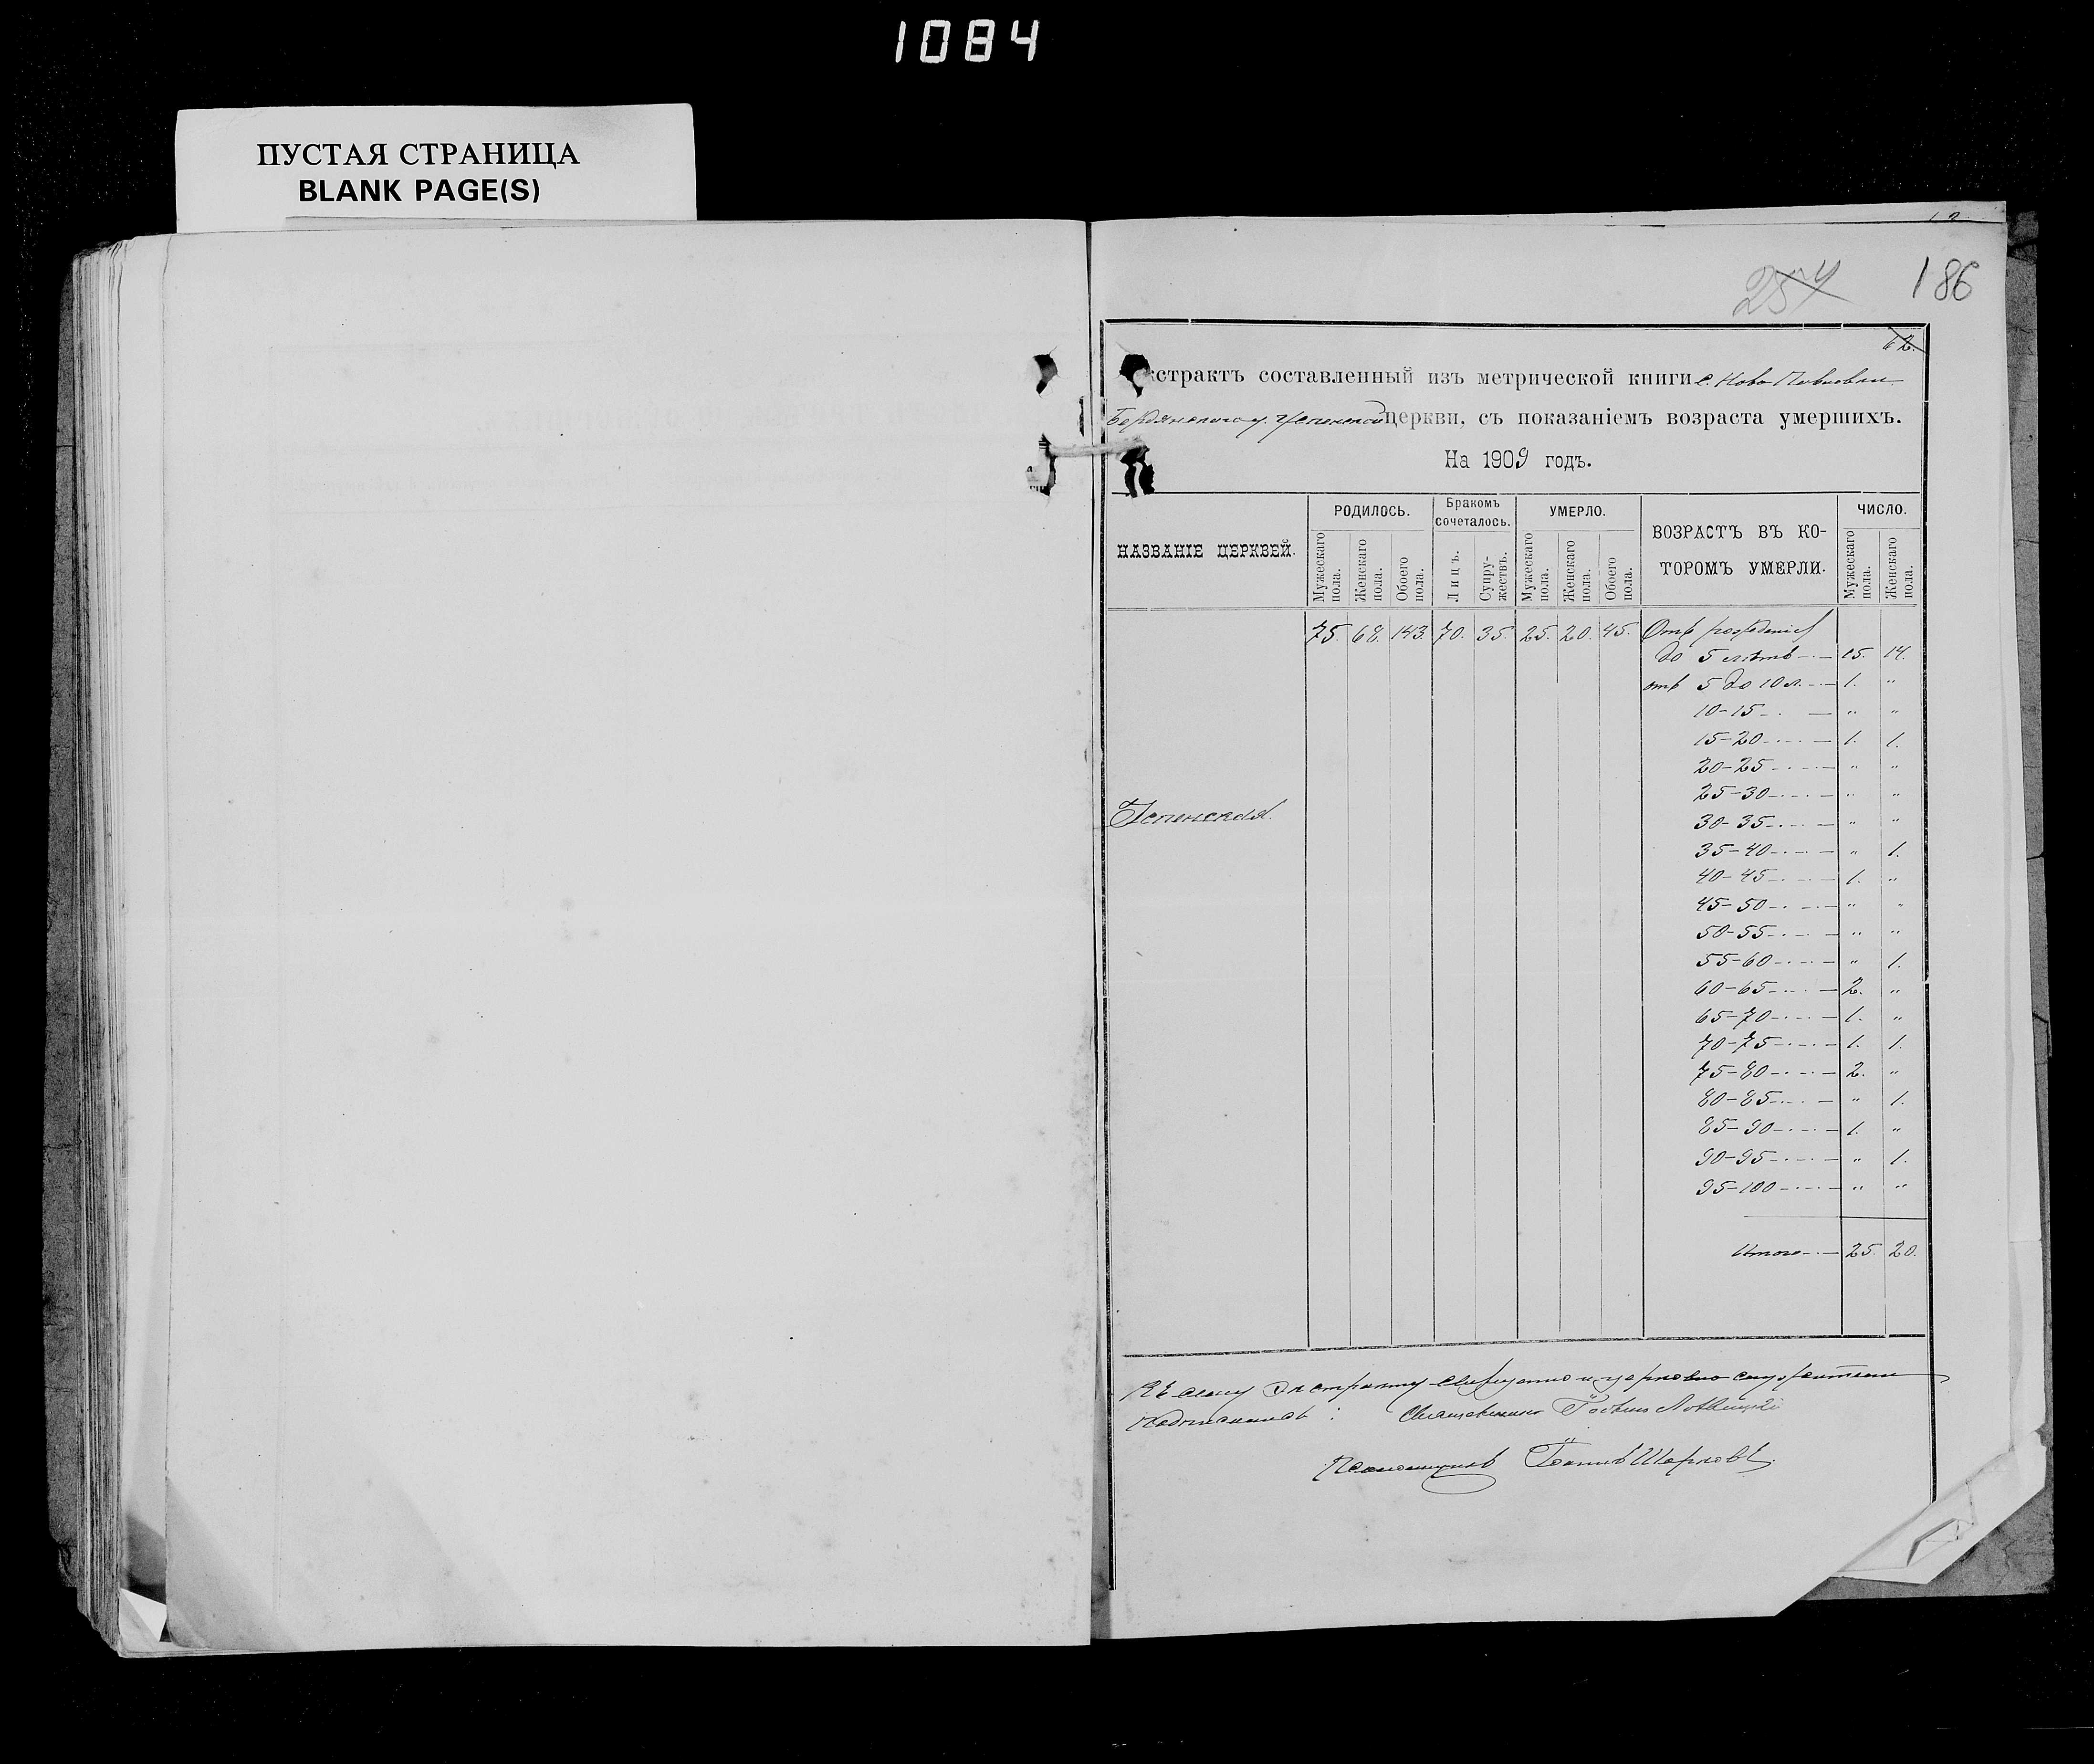 1084
ПУСТАЯ СТРАНИЦА
BLANK PAGE(S)
254
186
62.
кстрактъ составленный изъ метрической книги с. Ново-Павловки
Бердянскаго у. Успенской церкви, съ показаніемъ возраста умершихъ.
На 1909 годъ.
НАЗВАНІЕ ЦЕРКВЕЙ.
РОДИЛОСЬ.
Мужескаго пола.
Женскаго пола.
Обоего пола.
Бракомъ сочеталось.
Лицъ.
Супружествъ.
УМЕРЛО.
Мужескаго пола.
Женскаго пола.
Обоего пола.
ВОЗРАСТЪ ВЪ КО-
ТОРОМЪ УМЕРЛИ.
ЧИСЛО.
Мужескаго пола.
Женскаго пола.
75. 68. 143. 70. 35. 25. 20. 45. Отъ рожденія
до 5 лѣтъ 15. 14.
отъ 5 до 10 л. 1. "
10-15 " "
15-20 1. 1.
20-25 " "
25-30 " "
Успенская.
30-35 " "
35-40 " 1.
40-45 1. "
45-50 " "
50-55 " "
55-60 " 1.
60-65 2. "
65-70 1. "
70-75 1. 1.
75-80 2. "
80-85 " 1.
85-90 1. "
90-95 " 1.
95-100 " "
Итого 25. 20.
Къ сему экстракту священно и церковно служители
подписались: Священникъ
Псаломщикъ Іоаннъ